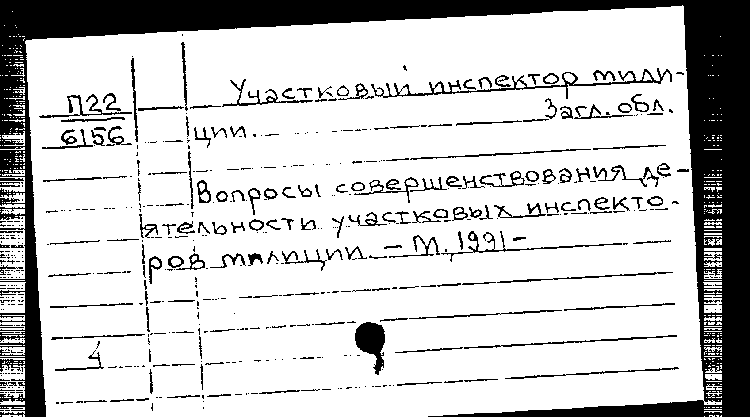 П22
6156
Участковый инспектор мили-
ции.
Загл. обл.
Вопросы совершенствования де-
ятельности участковых инспекто-
ров милиции. – М., 1991 –
4